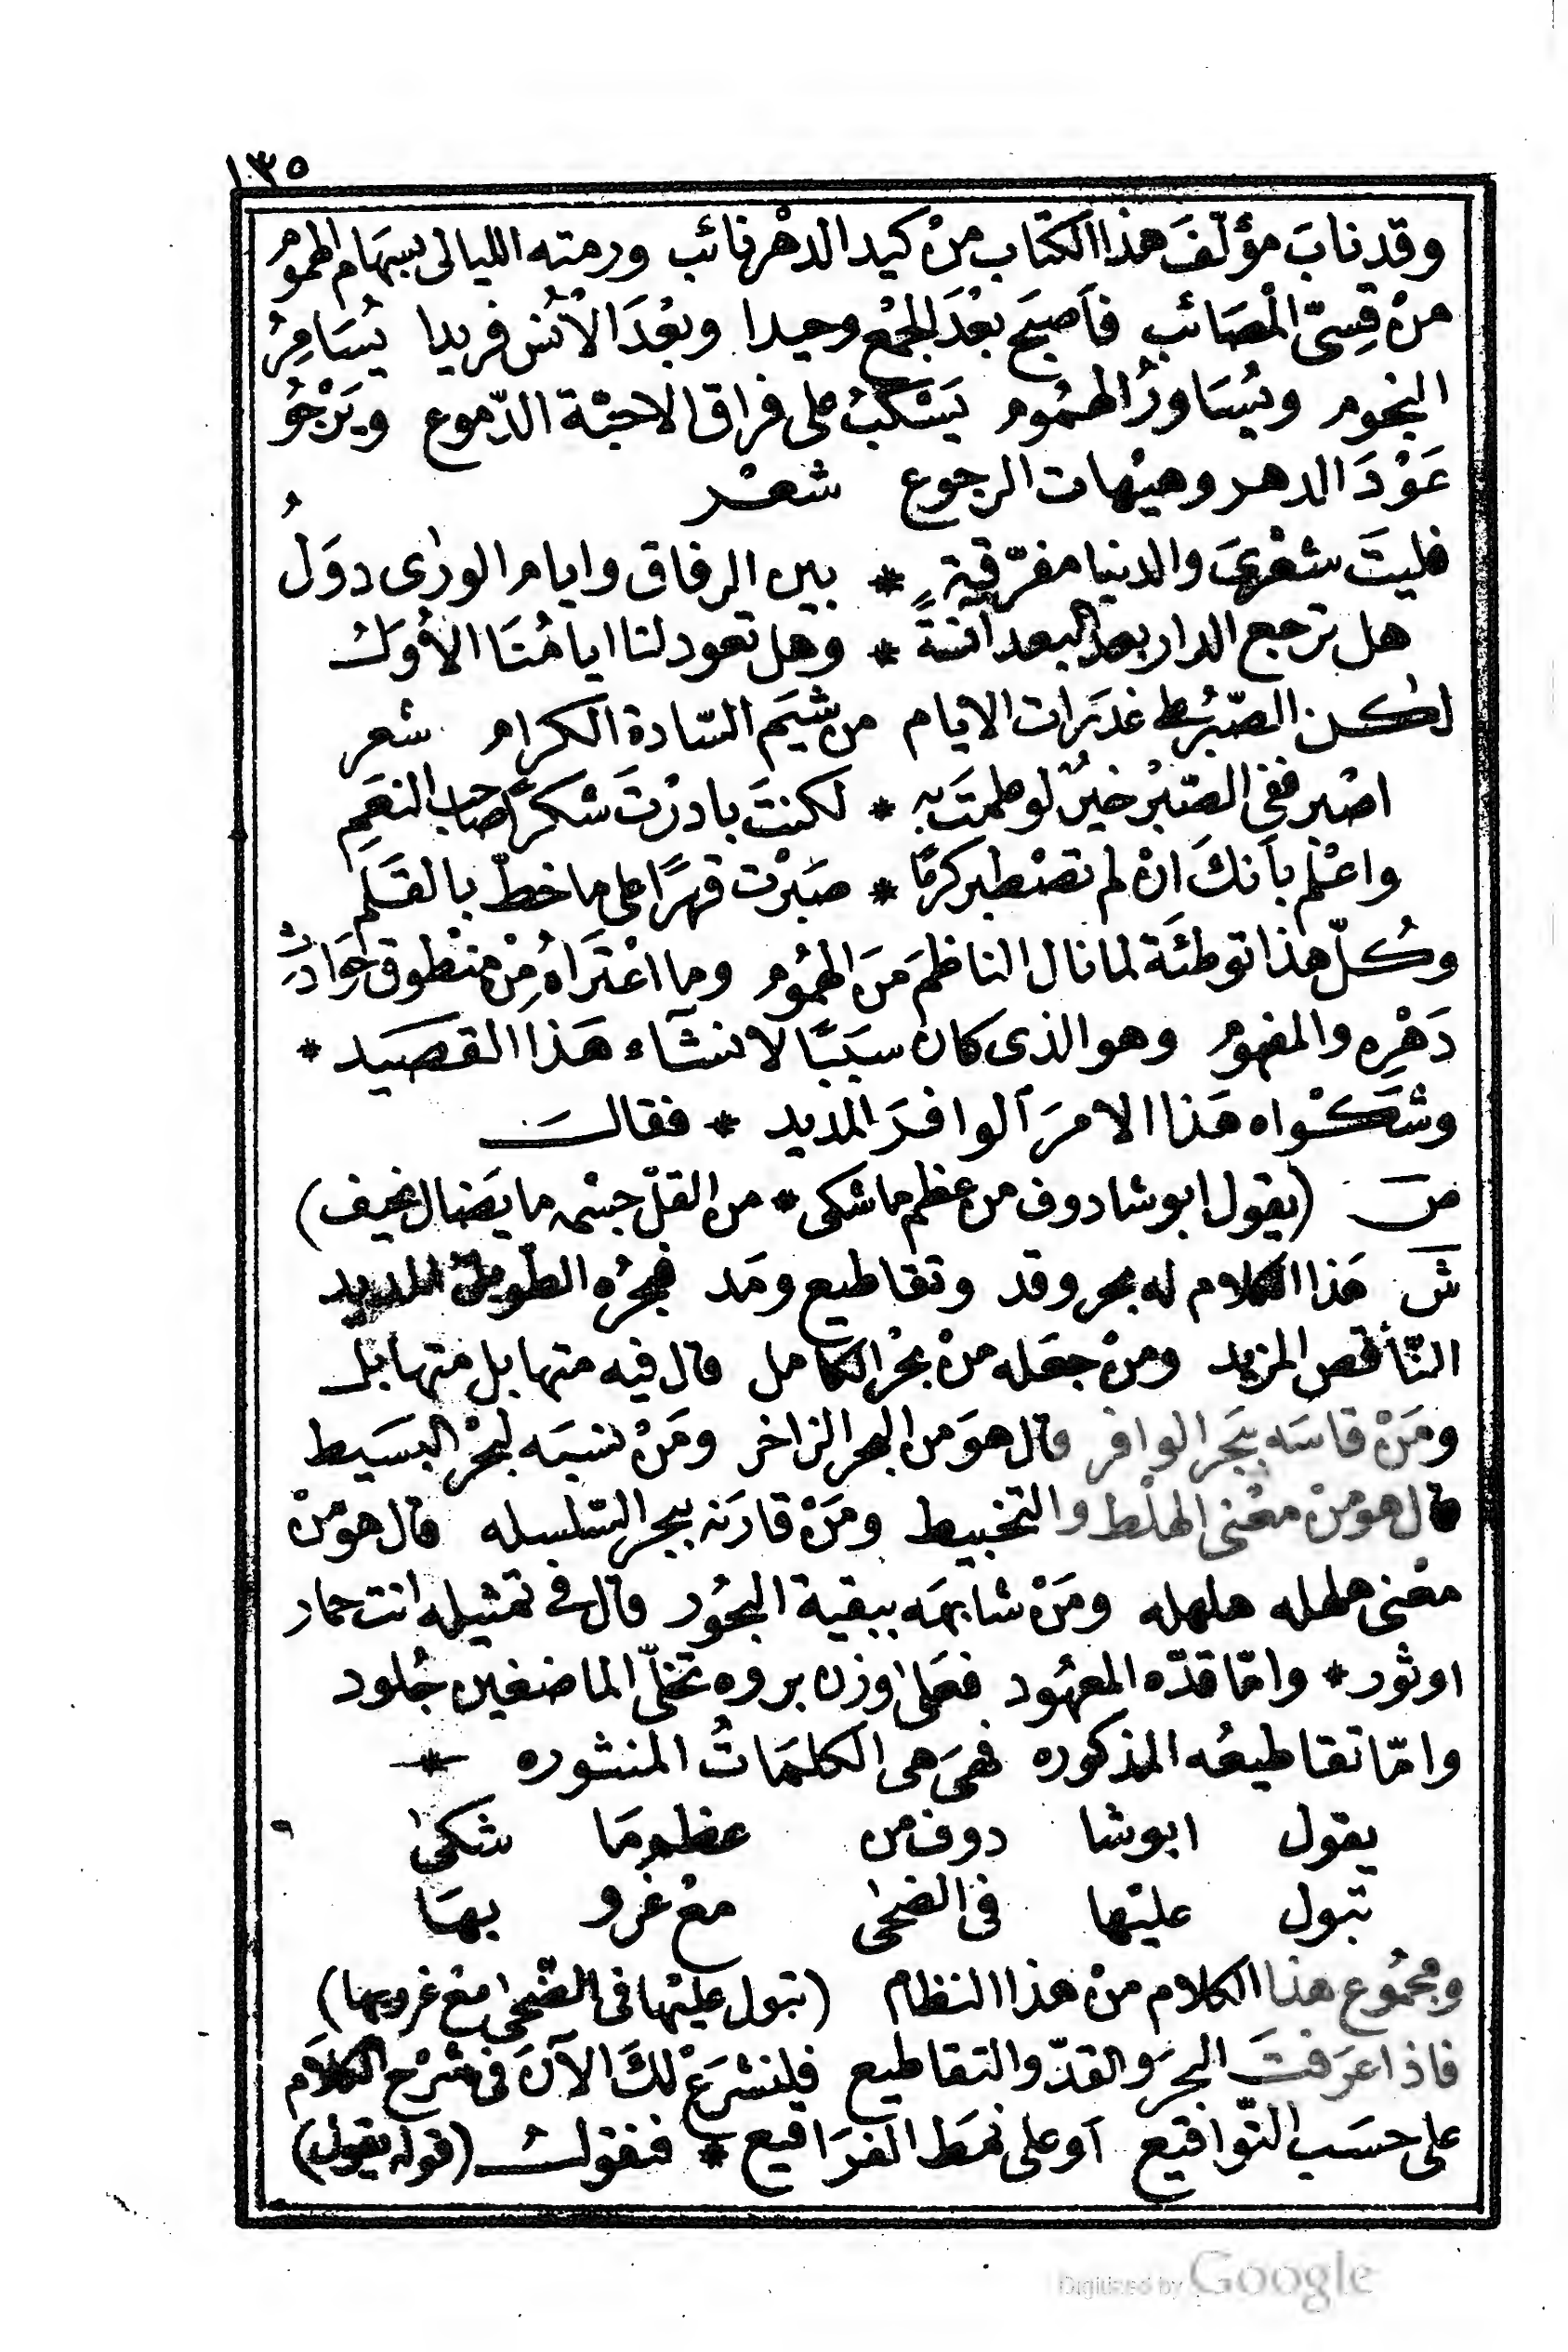 ١٣٥
وقد نابَ مؤلّفَ هذا الكتاب منْ كيد الدهْر نائب ورمته الليالى بسِهَام الهمومُ
منْ قِسِىّ الْمصَائب فأصبَح بعْدَ الجمْع وحيدا وبعْدَ الأُنْس فريدا يُسَامِرُ
النجوم ويُسَاورُ الهمُوم يَسْكبُ على فراق الاحبّة الدّموع ويَرْجُو
عَوْدَ الدهر وهيْهات الرجوع شعْر
فليتَ شعْرىَ والدنيا مفرّقةٍ * بين الرفاق وايام الورٰى دوَلُ
هل ترجع الدار بعد البعد آنسةً * وهل تعود لنا ايامُنَا الأُوَلُ
لٰكن الصّبرُ على غدَرات الايام من شيَم السّادة الكرام شعر
اصْبر ففى الصّبْر خيْرٌ لو علمتَ بهِ * لكنتَ بادرْتَ شكرًا صاحب النعَمِ
واعْلم بأنكَ انْ لم تصْطبر كرمًا * صَبَرْت قهرًا على ما خطّ بالقَلمِ
وكُلّ هذا توطئَة لما نال الناظمَ منَ الهمُوم وما اعْتَرَاهُ مِنْ منْطوق حَوَادثِ
دَهْرِه والمفهوم وهو الذى كان سبَبًا لانشآء هَذا القصَيد *
وشَكْواه هَذا الامرَ الوافرَ المديد * فقالَ
صَ (يقول ابو شادوف من عظم ما شكى * من القلّ جسْمه ما يضَال نحيف)
شَ هَذا الكلام له بحر وقد وتقاطيع ومَد فبحرُه الطّويل المديد
النّاقص المزيد ومنْ جعَله منْ بحْر الكامل قال فيه متهابل متهابل
ومَنْ قاسَه ببَحر الوافر قال هوَ من البحر الزاخر ومَنْ نسبَه لبحْر البسَيط
قال هو منْ معْنى الهلْط والتخبيط ومَنْ قارَنه ببحر السّلسله قال هو منْ
معْنى هلهله هلهله ومَنْ شابهَه ببقية البحُور قال فى تمثيله انت حمار
او ثور * وامّا قدّه المعهُود فعَلٰى وزن بروه تخلّى الماضغين جُلود
وامّا تقاطيعُه المذكوره فهىَ هى الكلمَاتُ المنثوره *
يقول ابو شا دوف من عظم مَا شكىٰ
تبول عليْها فى الضحىٰ معْ غُرو بهَا
ومجمُوع هذا الكلام منْ هذا النظام (تبول عليْها فى الضّحىٰ معْ غروبها)
فاذا عرَفتَ البحرَ والقدّ والتقاطيع فلنشرَعْ لكَ الآنَ فى شرْح الكلاَم
على حسَب التّواقيع أو على نمَط الفرَاقيع * فنقولُ (قوله يقول)